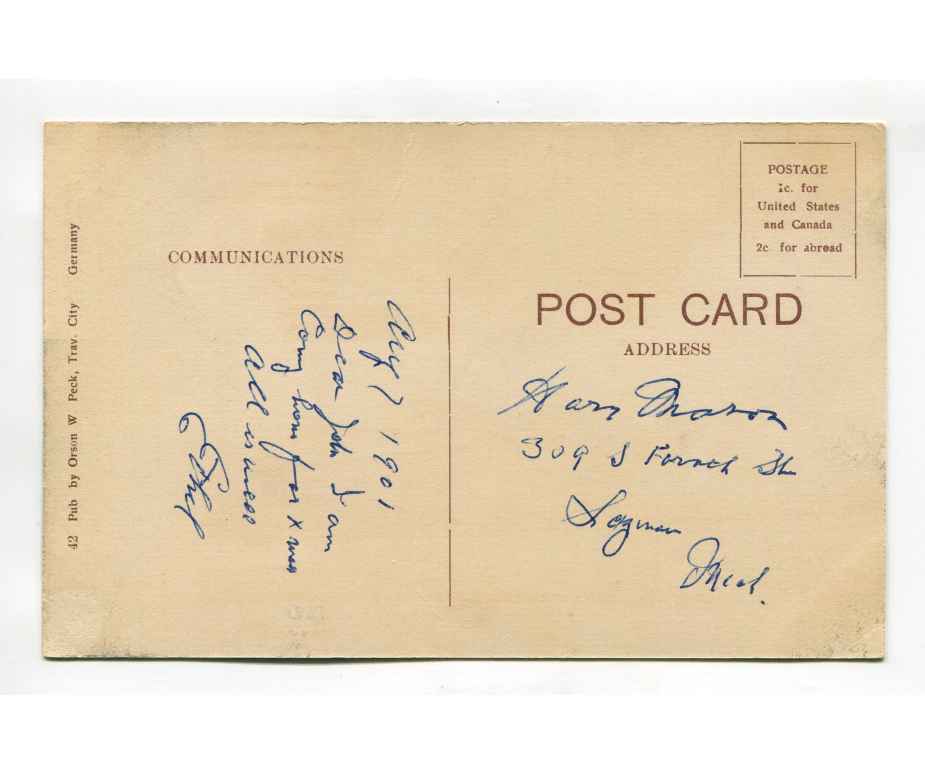 42 Pub by Orson W Peck, Trav. City Germany
COMMUNICATIONS
Aug 7 1901
Dear John I am
Comg hom for x mas
All is well
POSTAGE
1c. for
United States
and Canada
2c for abroad
POST CARD
ADDRESS
Mason
309 S